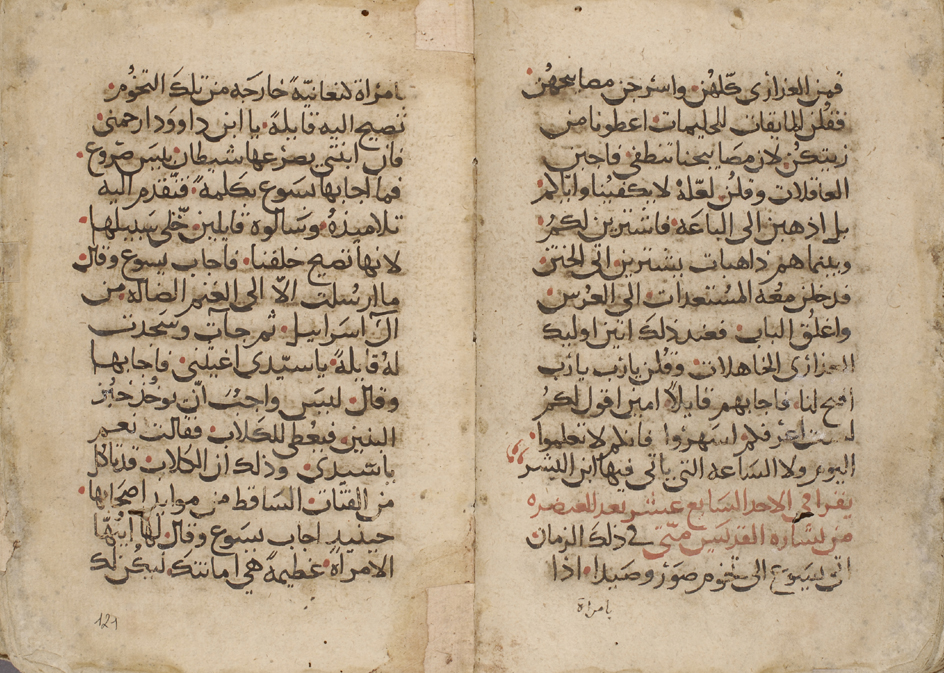 قمن العذارى كلهن واسرجن مصابيحهن
فقلن المايقات للحليمات اعطونا من
زيتكن لان مصابيحنا تنطفي فاجبن
العاقلات وقلن لعله لا يكفينا واياكم
بل اذهبن الى الباعه فاشترين لكم
وبينما هم داهبات يشترين اتى الختن
فدخلن معه المستعدات الى العرس
واغلق الباب فعند ذلك اتين اوليك
العذارى الجاهلات وقلن يارب يارب
افتح لنا فاجابهم قايلاً امين اقول لكم
لست اعرفكم اسهروا فانكم لا تعلموا
اليوم ولا الساعه التي ياتي فيها ابن البشر
يقرا في الاحد السابع عشر بعد العنصره
من بشاره القديس متى في ذلك الزمان
اتى يسوع الى تخوم صور وصيدا اذا
بامراة
بامراة كنعانيةً خارجه من تلك التخوم
تصيح اليه قايلةً يا ابن داوود ارحمني
فان ابنتي يصرعها شيطان بليس صروع
فما اجابها يسوع بكلمةً فتقدم اليه
تلاميذهُ وسالوه قايلين خلي سبيلها
لانها تصيح خلفنا فاجاب يسوع وقال
ما ارسلت الاّ الى الغنم الضاله من
ال اسراييل ثم جآت وسجدت
لهُ قايلةً ياسيّدي اغيثني فاجابها
وقال ليس واجبُ انّ يوخذ خبز
البنين فيعطى للكلاب فقالت نعم
ياسيدي وذلك ان الكلاب قد تاكل
من الفتات الساقط من موايد اصحابها
حينيد اجاب يسوع وقال لها ايتها
الامراة عظيمةً هي امانتك ليكن لك
121